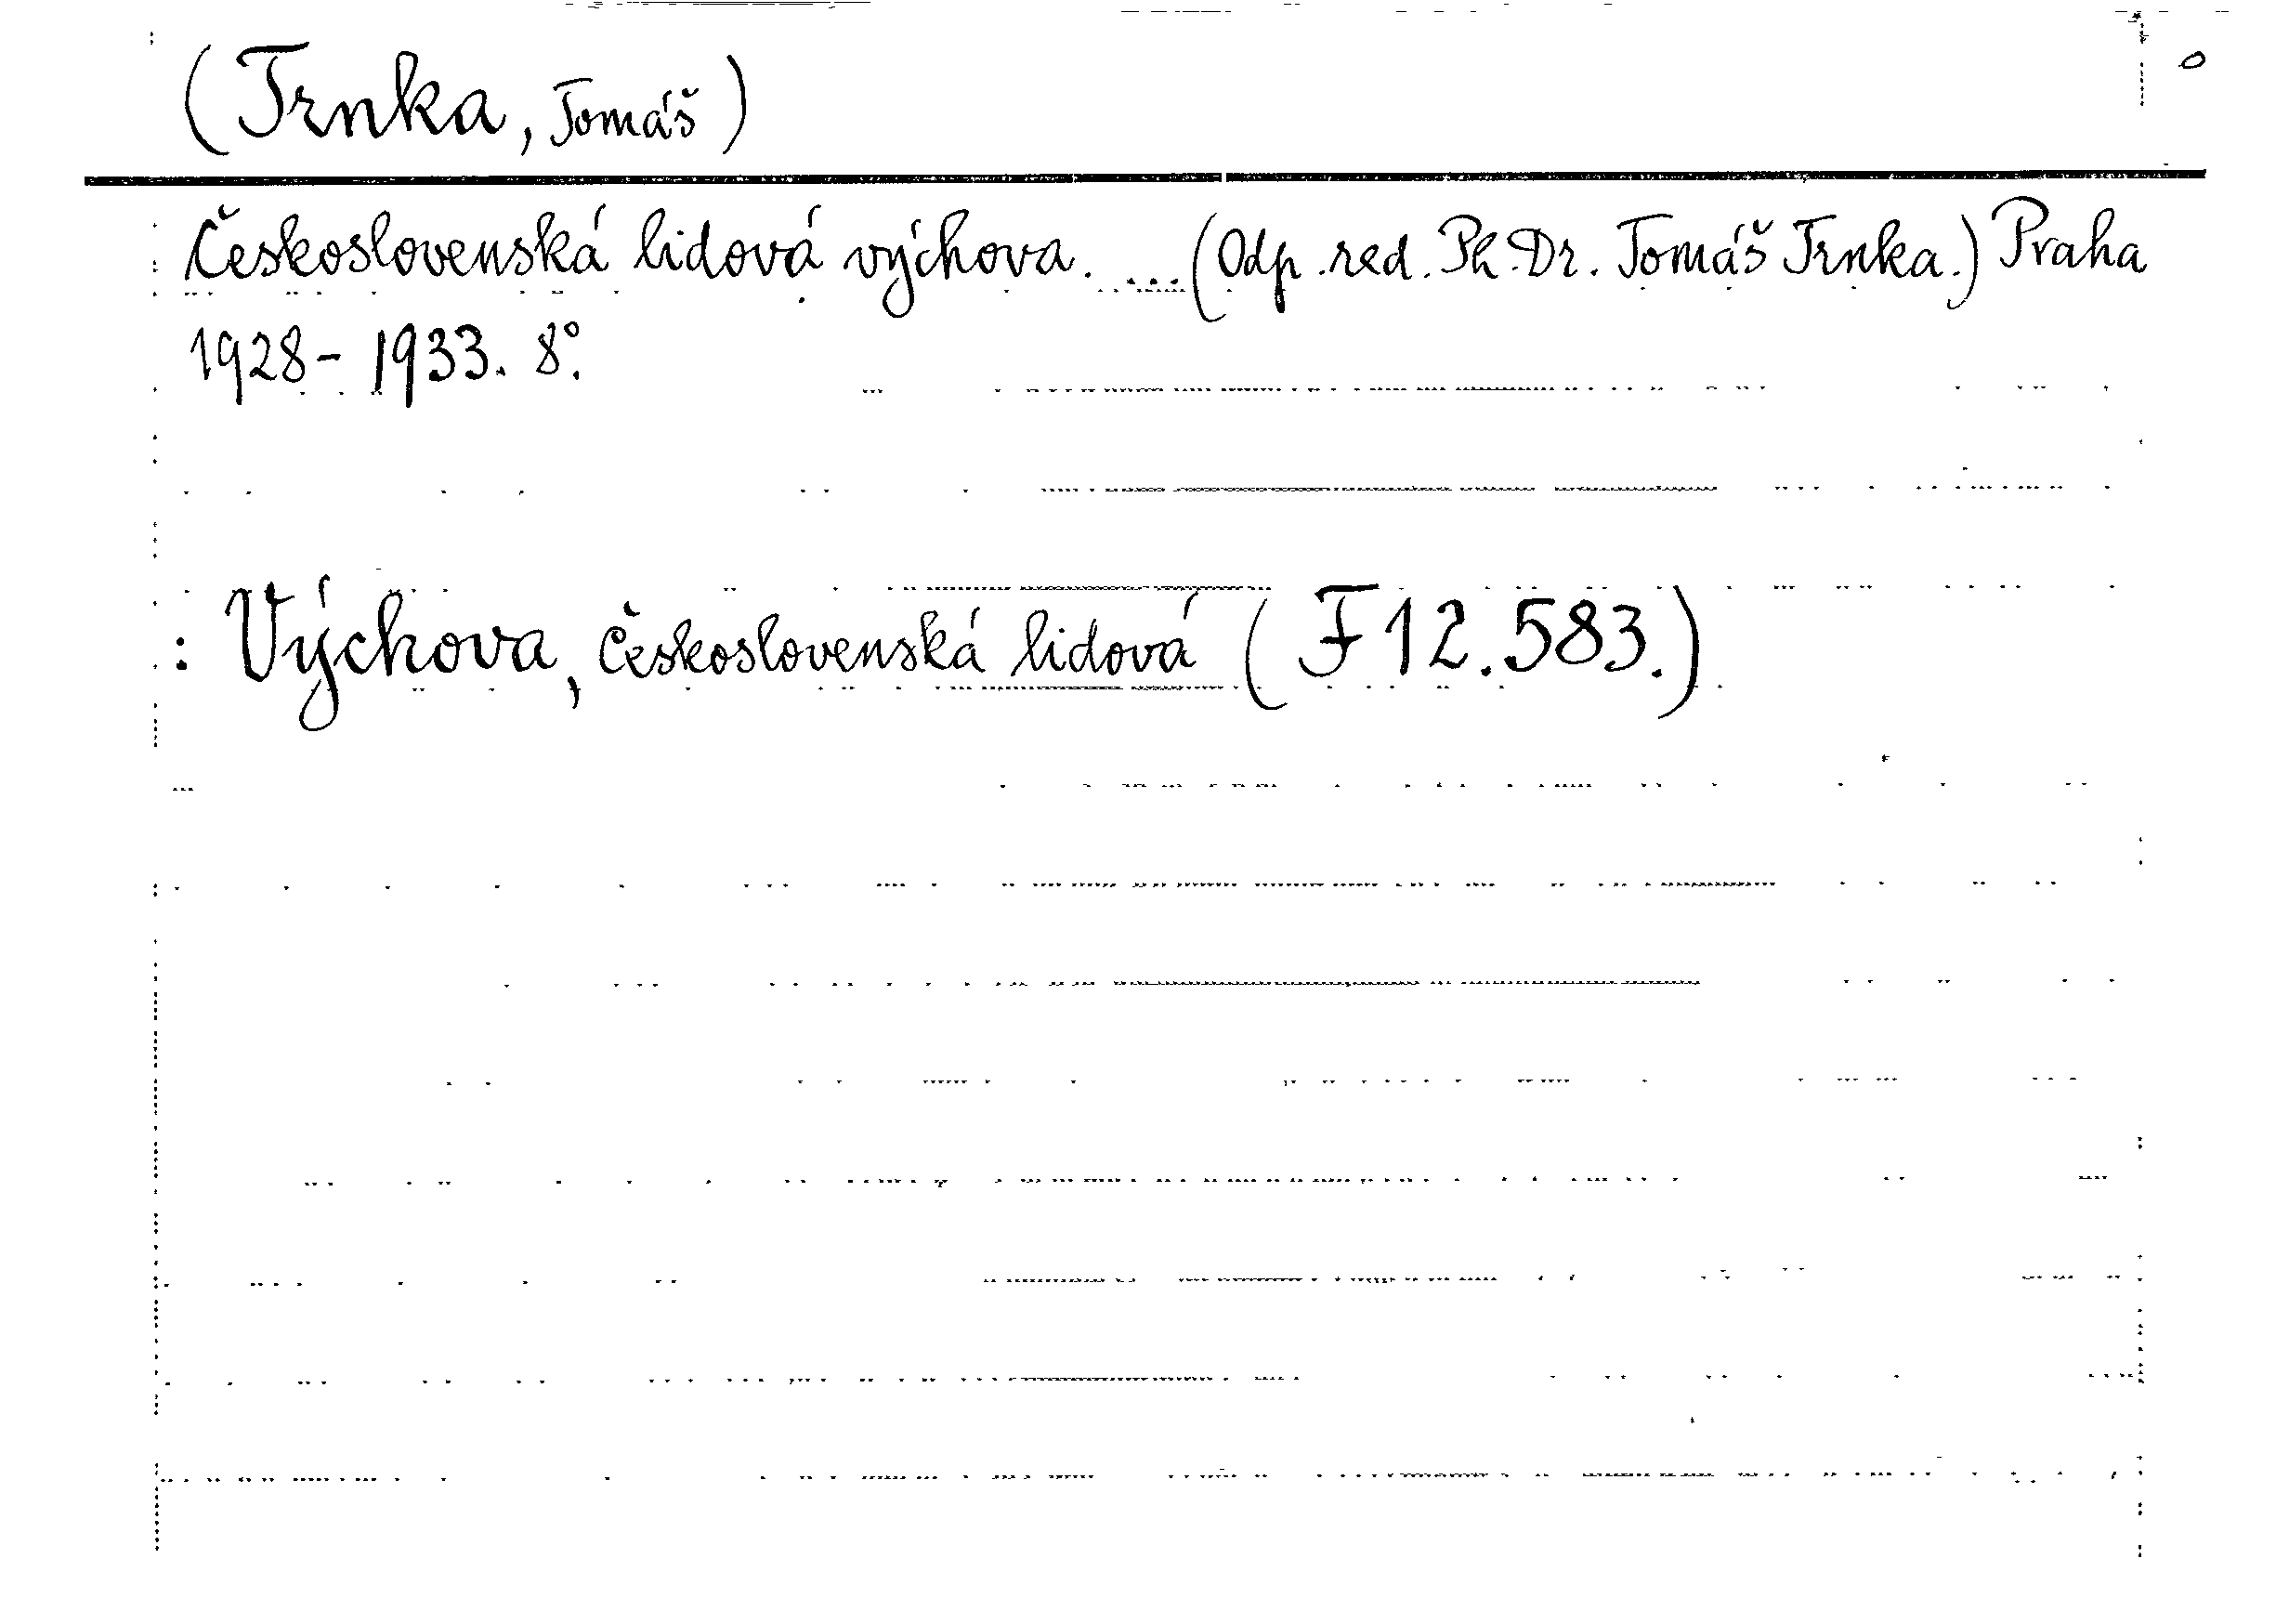 (Trnka, Tomáš)
Československá lidová výchova. ... (Odp. red. Ph.Dr. Tomáš Trnka.) Praha
1928 - 1933. 8°.
: Výchova, Československá lidová (F 12.583.)